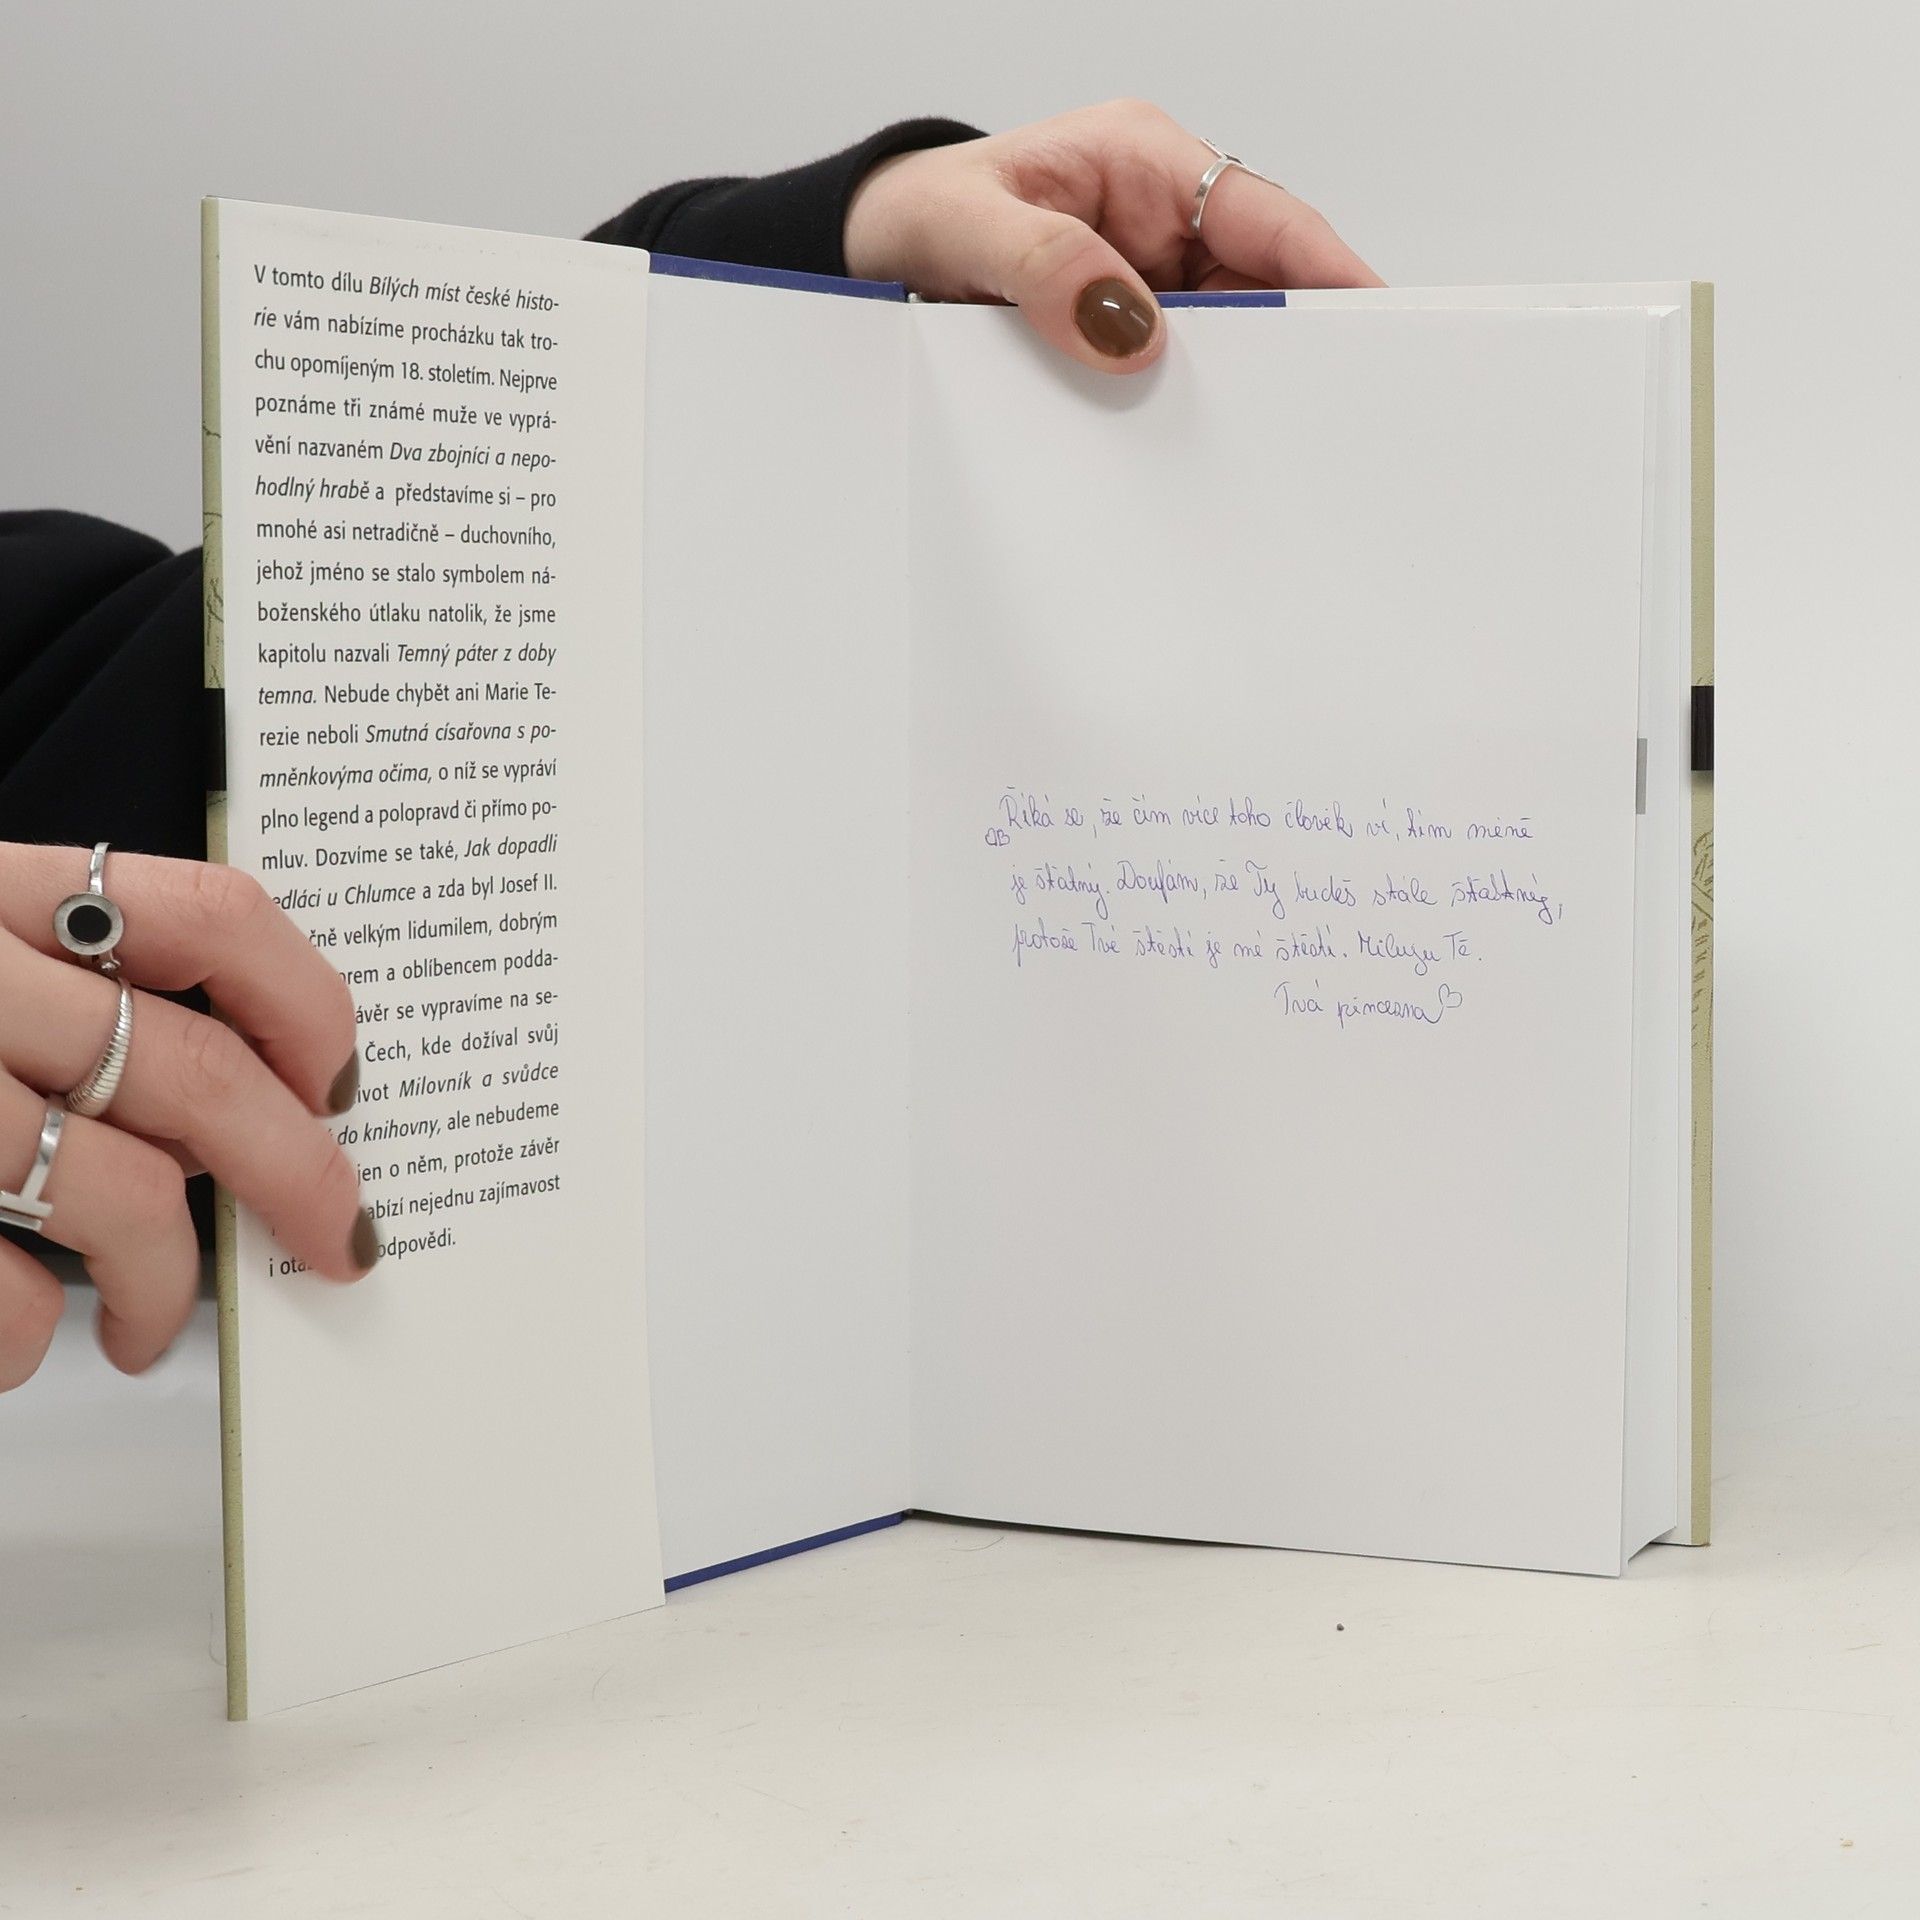 V tomto dílu Bílých míst české histo-
rie vám nabízíme procházku tak tro-
chu opomíjeným 18. stoletím. Nejprve
poznáme tři známé muže ve vyprá-
vění nazvaném Dva zbojníci a nepo-
hodlný hrabě a představíme si – pro
mnohé asi netradičně – duchovního,
jehož jméno se stalo symbolem ná-
boženského útlaku natolik, že jsme
kapitolu nazvali Temný páter z doby
temna. Nebude chybět ani Marie Te-
rezie neboli Smutná císařovna s po-
mněnkovýma očima, o níž se vypráví
plno legend a polopravd či přímo po-
mluv. Dozvíme se také, Jak dopadli
edláci u Chlumce a zda byl Josef II.
čně velkým lidumilem, dobrým
orem a oblíbencem podda-
ávěr se vypravíme na se-
Čech, kde dožíval svůj
ivot Milovník a svůdce
do knihovny, ale nebudeme
jen o něm, protože závěr
abízí nejednu zajímavost
i otá odpovědi.
Říká se, že čím více toho člověk ví, tím méně
je šťatný. Doufám, že Ty budeš stále šťastný,
protože Tvé štěstí je mé štěstí. Miluju Tě.
Tvá princezna